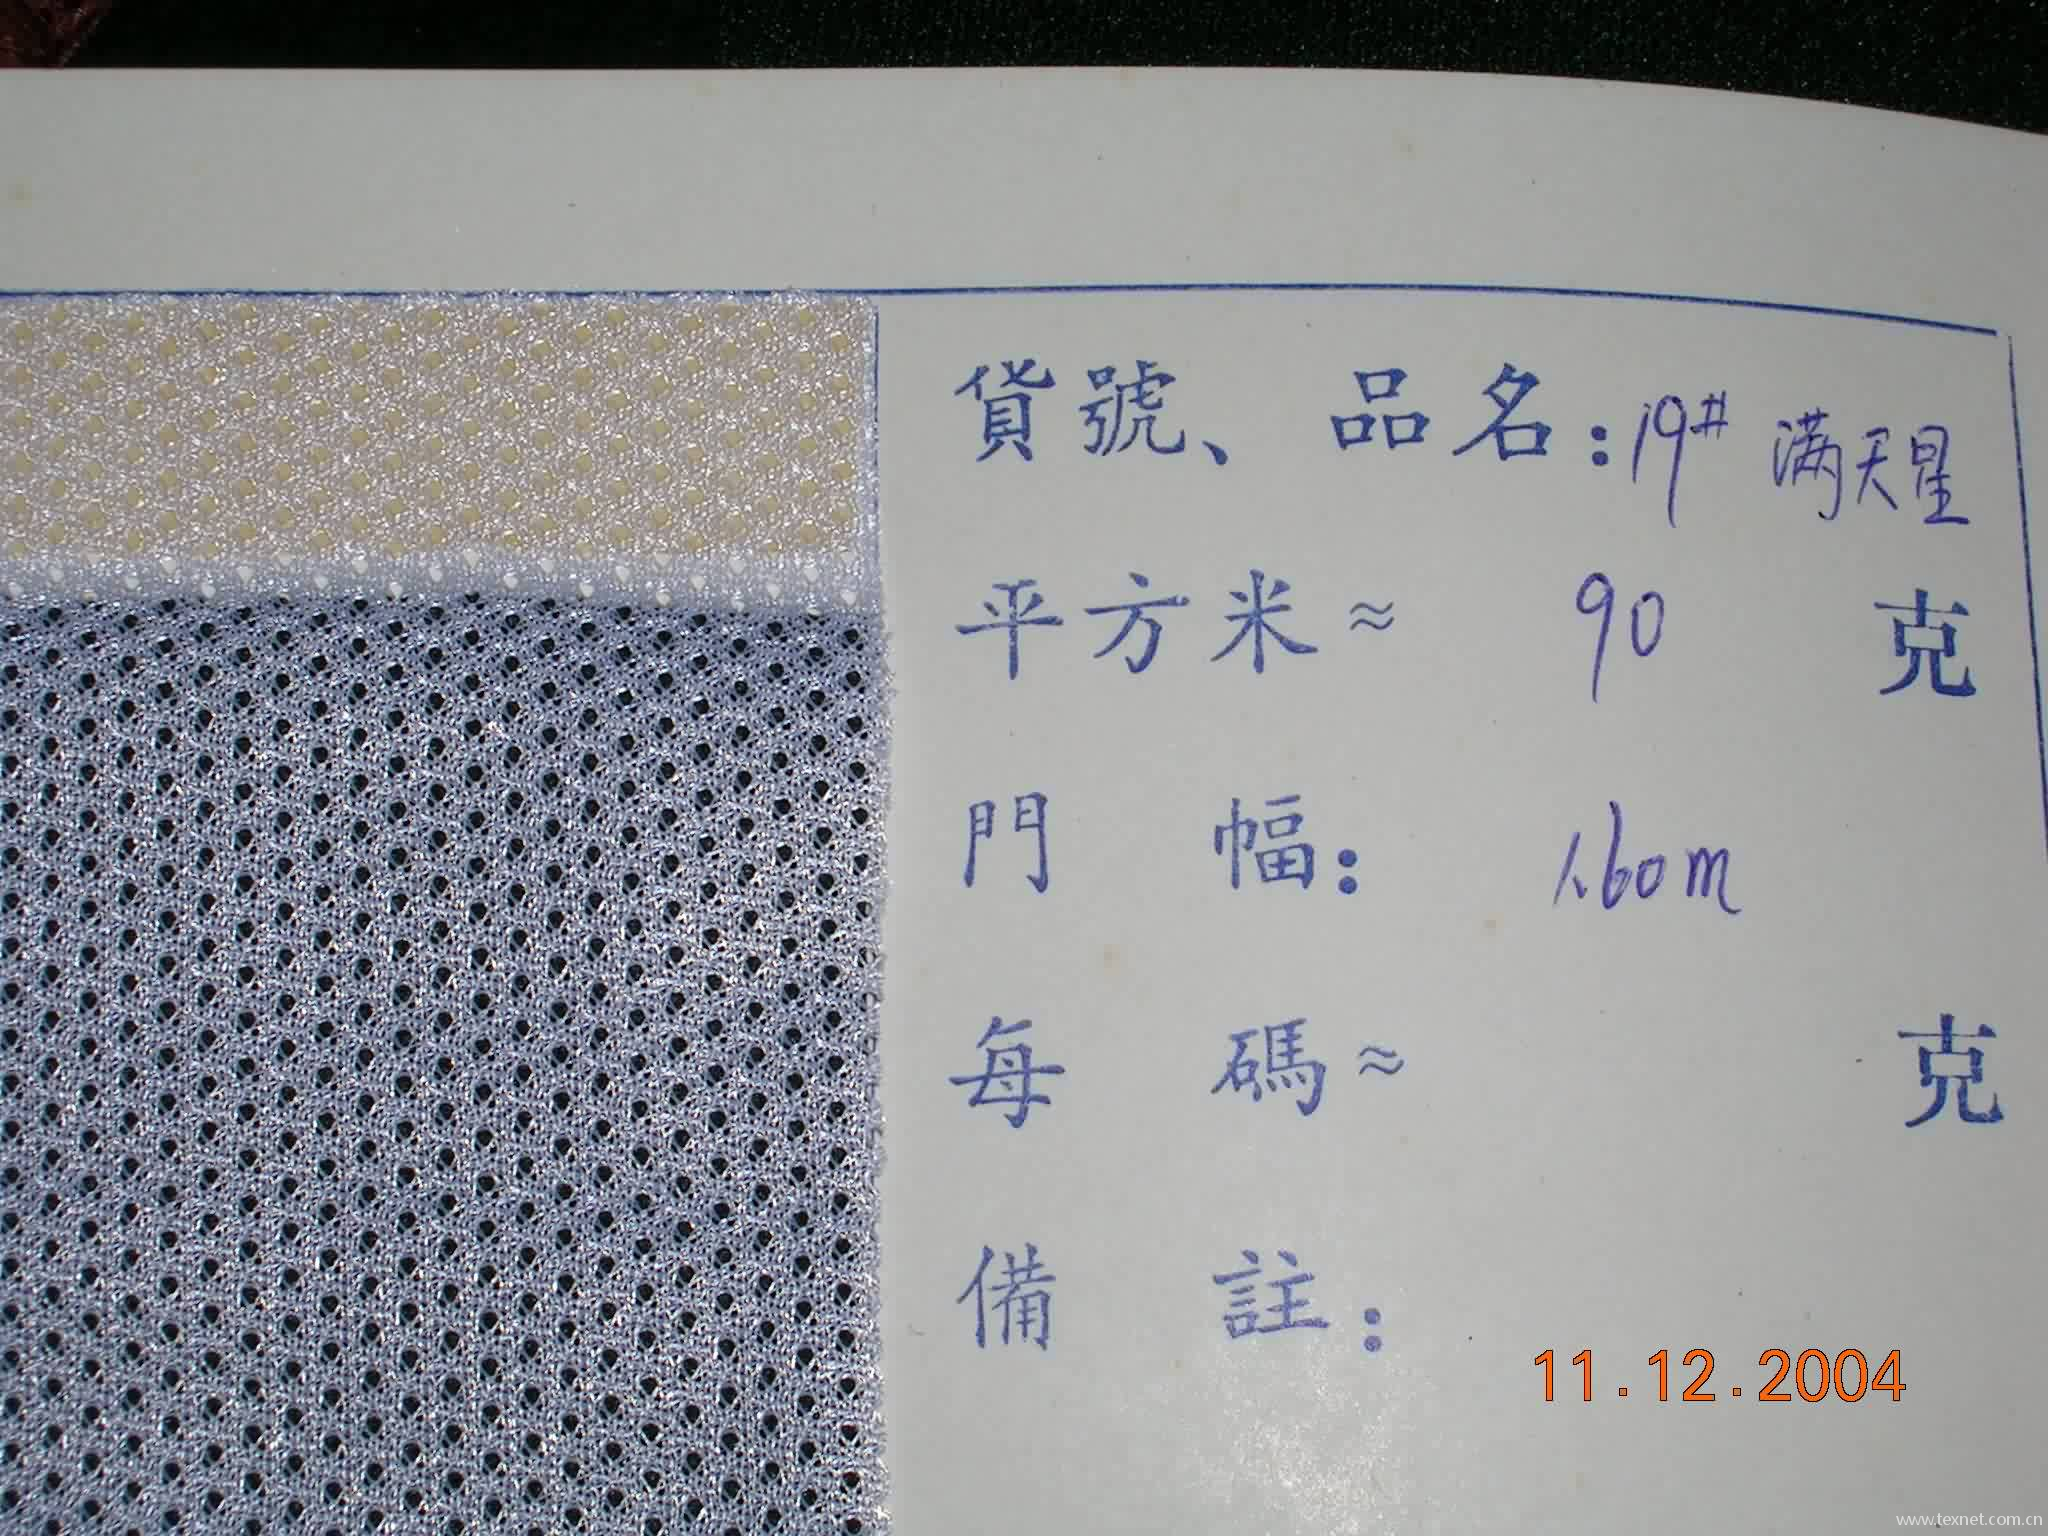 貨號、品名:19# 满天星
平方米≈ 90 克
門幅: 1.60m
每碼≈ 克
備註:
11.12.2004
www.texnet.com.cn